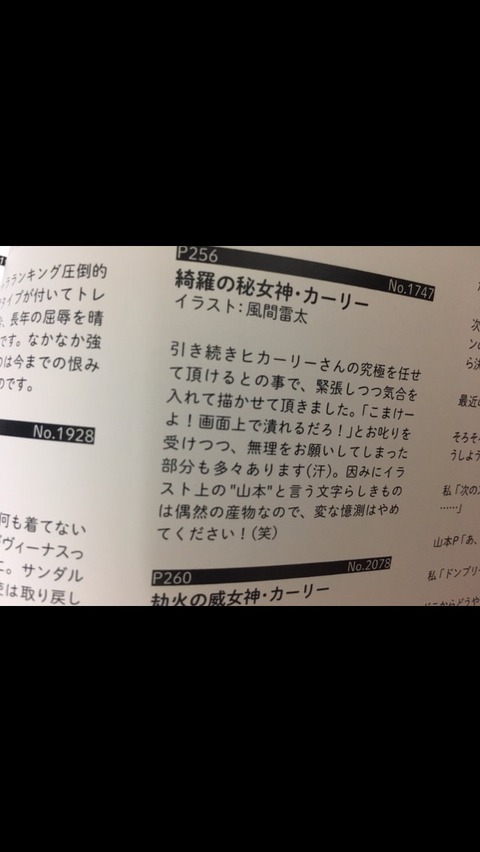 ランキング圧倒的
タイプが付いてトレ
、長年の屈辱を晴
です。なかなか強
のは今までの恨み
のです。
No.1928
何も着てない
ヴィーナスっ
こ。サンダル
は取り戻し
P256
No.1747
綺羅の秘女神・カーリー
イラスト：風間雷太
引き続きヒカーリーさんの究極を任せ
て頂けるとの事で、緊張しつつ気合を
入れて描かせて頂きました。「こまけー
よ！画面上で潰れるだろ！」とお叱りを
受けつつ、無理をお願いしてしまった
部分も多々あります(汗)。因みにイラ
スト上の"山本"と言う文字らしきもの
は偶然の産物なので、変な憶測はやめ
てください！(笑)
P260
No.2078
劫火の威女神・カーリー
次
ンの
ら決
最近の
そろそ
うしよう
私「次のス
……」
山本P「あ、
私「ドンブリー